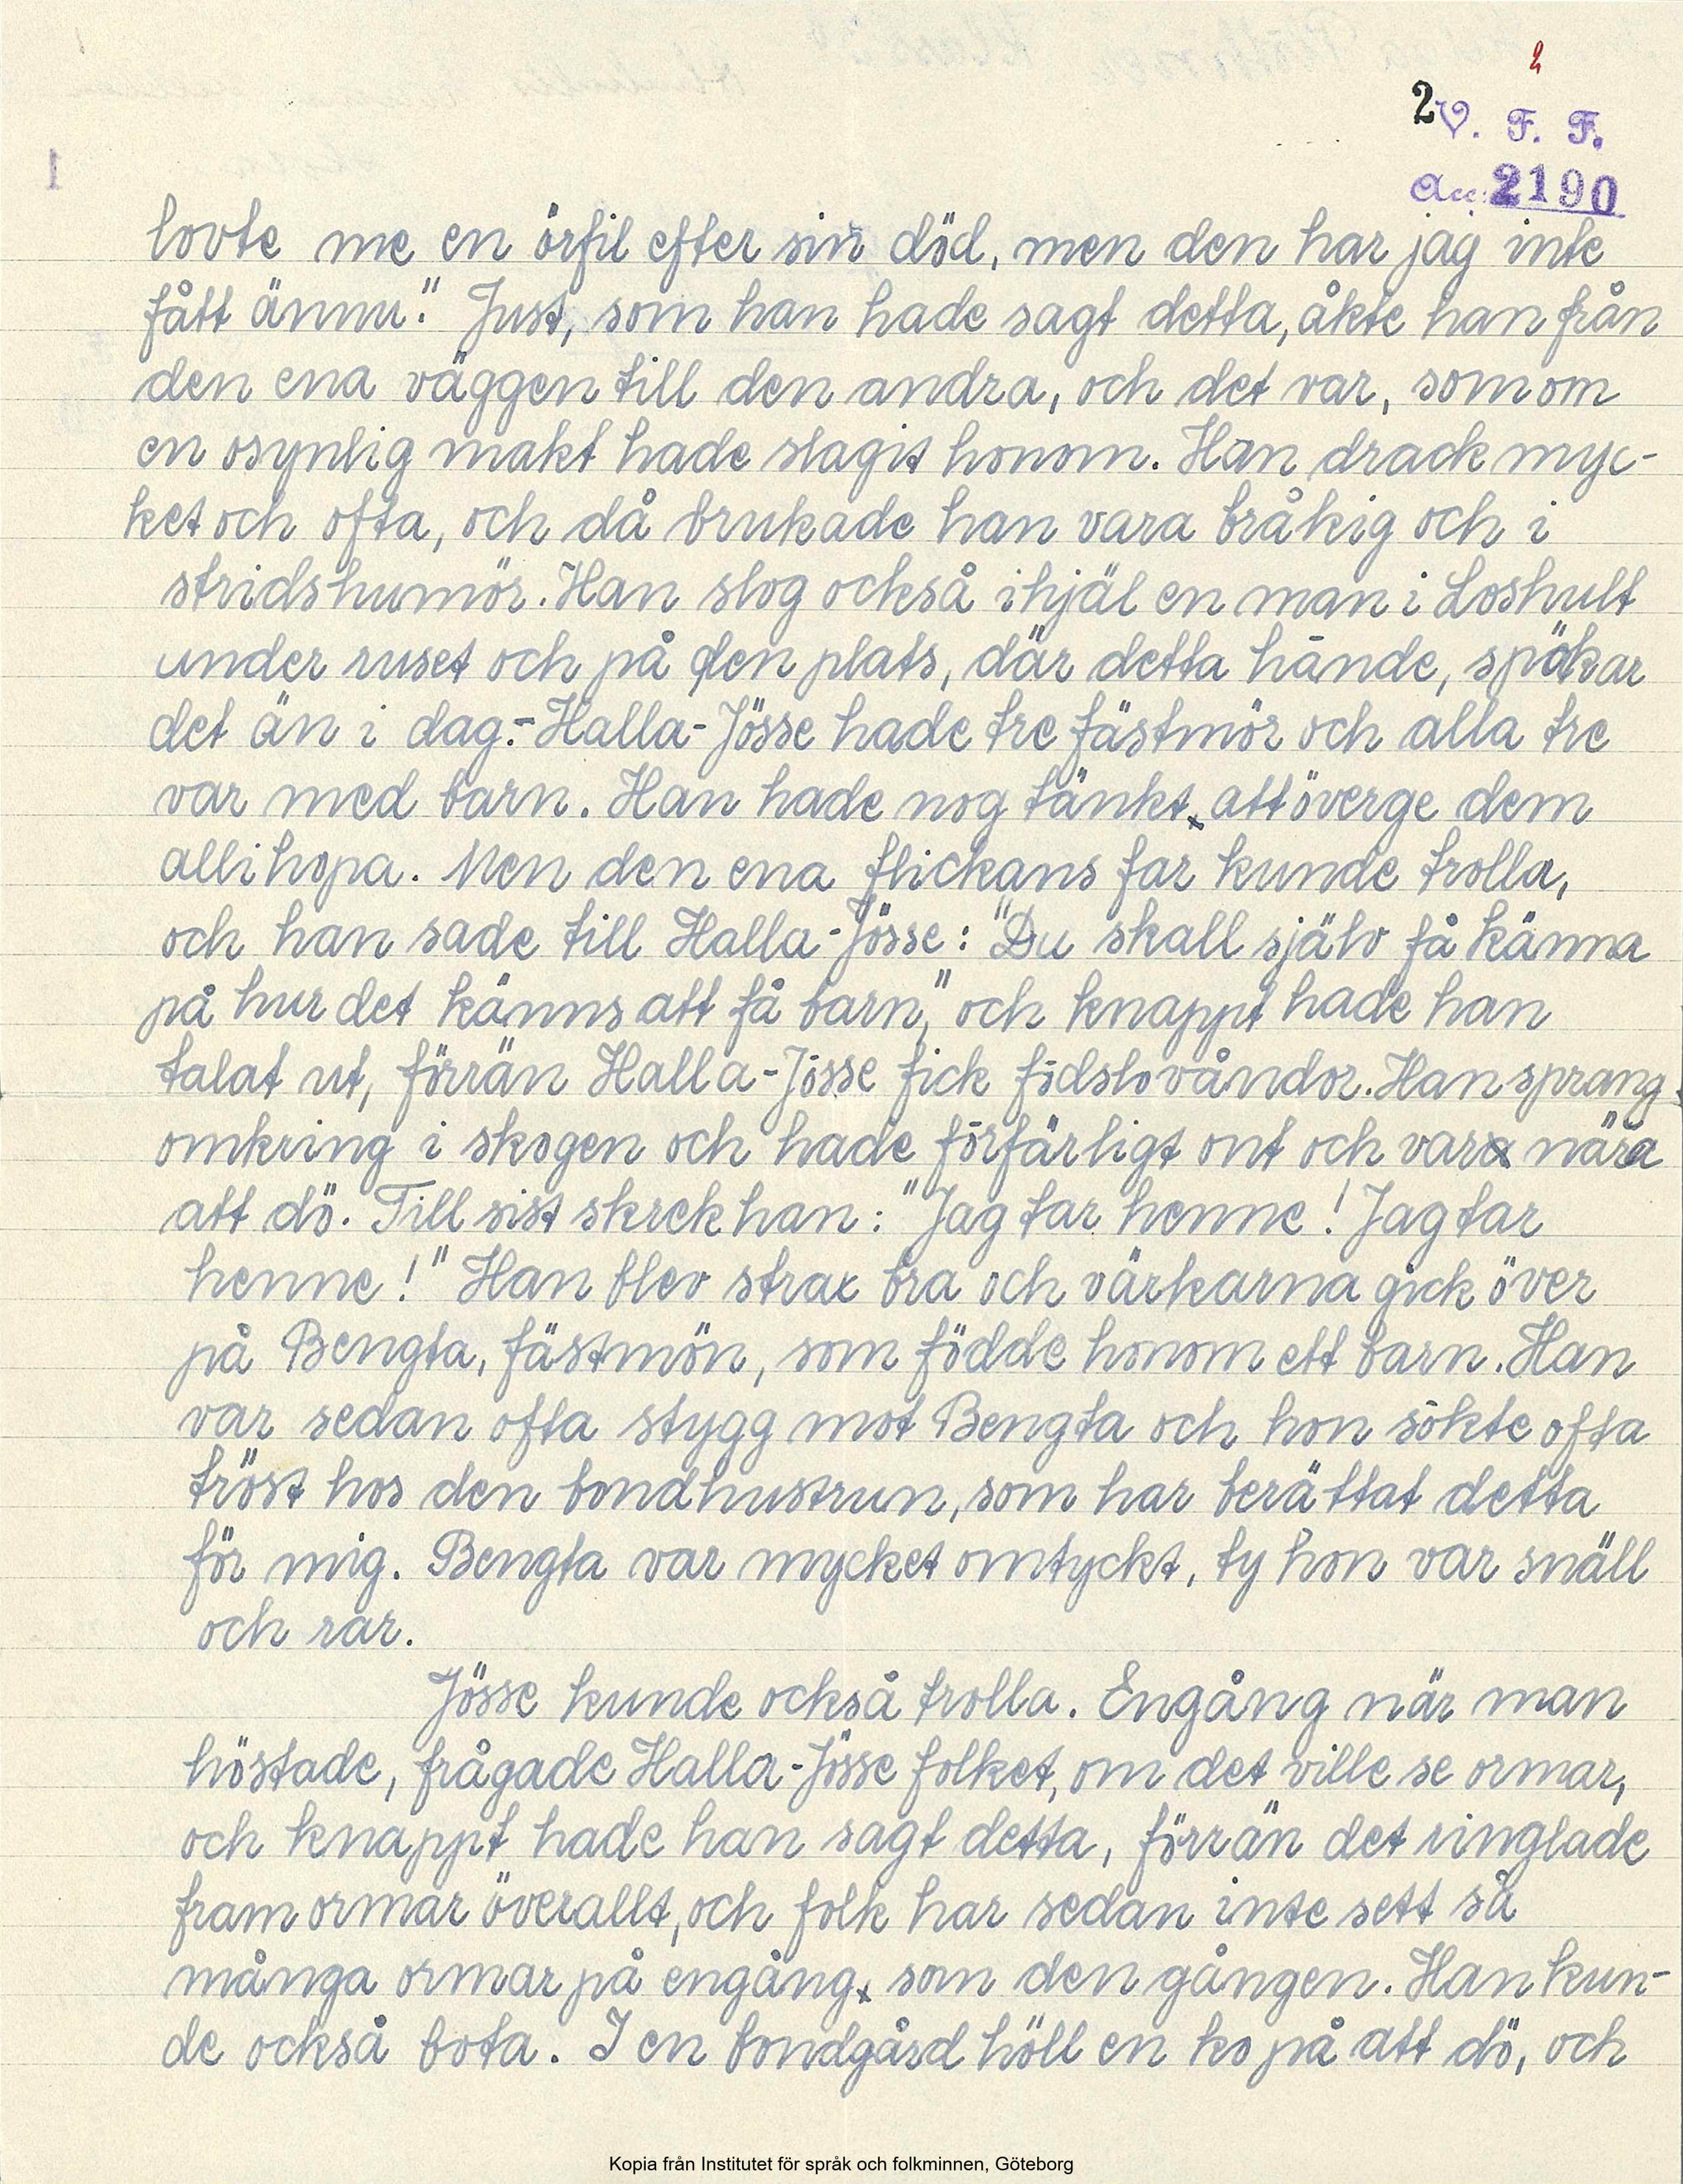 2
2 V. F. F.
Acc: 2190
lovte me en örfil efter sin död, men den har jag inte
fått ännu." Just, som han hade sagt detta, åkte han från
den ena väggen till den andra, och det var, som om
en osynlig makt hade slagit honom. Han drack myc-
ket och ofta, och då brukade han vara bråkig och i
stridshumör. Han slog också ihjäl en man i Loshult
under ruset och på den plats, där detta hände, spökar
det än i dag.- Halla-Jösse hade tre fästmör och alla tre
var med barn. Han hade nog tänkt att överge dem
allihopa. Men den ena flickans far kunde trolla,
och han sade till Halla-Jösse: "Du skall själv få känna
på hur det känns att få barn," och knappt hade han
talat ut, förrän Halla-Jösse fick födslovåndor. Han sprang
omkring i skogen och hade förfärligt ont och var nära
att dö. Till sist skrek han: "Jag tar henne! Jag tar
henne!" Han blev strax bra och värkarna gick över
på Bengta, fästmön, som födde honom ett barn. Han
var sedan ofta stygg mot Bengta och hon sökte ofta
tröst hos den bondhustrun, som har berättat detta
för mig. Bengta var mycket omtyckt, ty hon var snäll
och rar.
Jösse kunde också trolla. Engång när man
höstade, frågade Halla-Jösse folket, om det ville se ormar,
och knappt hade han sagt detta, förrän det ringlade
fram ormar överallt, och folk har sedan inte sett så
många ormar på engång som den gången. Han kun-
de också bota. I en bondgård höll en ko på att dö, och
Kopia från Institutet för språk och folkminnen, Göteborg